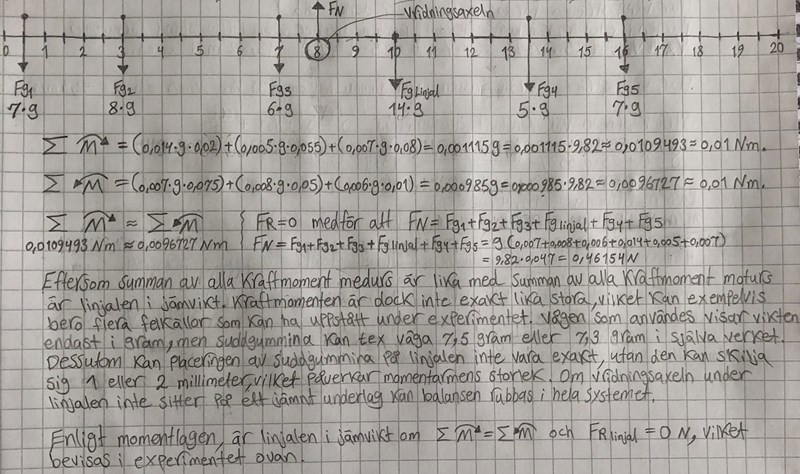 FN Vridningsaxeln
0 1 2 3 4 5 6 7 8 9 10 11 12 13 14 15 16 17 18 19 20
Fg1 Fg2 Fg3 Fg linjal Fg4 Fg5
7·g 8·g 6·g 14·g 5·g 7·g
∑ M = (0,014·g·0,02)+(0,005·g·0,055)+(0,007·g·0,08)= 0,001115g = 0,001115·9,82 ≈ 0,0109493 ≈ 0,01 Nm.
∑ M = (0,007·g·0,075)+(0,008·g·0,05)+(0,006·g·0,01) = 0,000985g = 0,000985·9,82 = 0,0096727 ≈ 0,01 Nm.
∑ M ≈ ∑ M { FR=0 medför att FN = Fg1+Fg2+Fg3+Fg linjal + Fg4 + Fg5
0,0109493 Nm ≈ 0,0096727 Nm { FN = Fg1+Fg2+Fg3+Fg linjal+Fg4+Fg5 = g (0,007+0,008+0,006+0,014+0,005+0,007)
= 9,82·0,047 = 0,46154 N
Eftersom summan av alla kraftmoment medurs är lika med summan av alla kraftmoment moturs
är linjalen i jämvikt. Kraftmomenten är dock inte exakt lika stora, vilket kan exempelvis
bero flera felkällor som kan ha uppstått under experimentet. Vågen som användes visar vikten
endast i gram, men suddgummina kan tex väga 7,5 gram eller 7,3 gram i själva verket.
Dessutom kan placeringen av suddgummina på linjalen inte vara exakt, utan den kan skilja
sig 1 eller 2 millimeter, vilket påverkar momentarmens storlek. Om vridningsaxeln under
linjalen inte sitter på ett jämnt underlag kan balansen rubbas i hela systemet.
Enligt momentlagen, är linjalen i jämvikt om ∑ M = ∑ M och FR linjal = 0 N, vilket
bevisas i experimentet ovan.